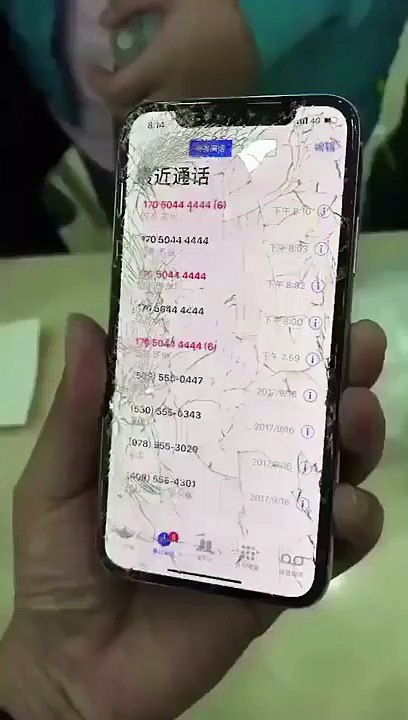 8:14
4G
所有通话
编辑
最近通话
170 5044 4444 (6)
下午 8:10
170 5044 4444
下午 8:03
170 5044 4444
下午 8:02
170 5044 4444
下午 8:00
170 5044 4444 (6)
下午 7:59
555-0447
2017/9/16
(530) 555-6343
2017/9/16
(978) 555-3020
2017/9/16
(408) 555-4301
2017/9/16